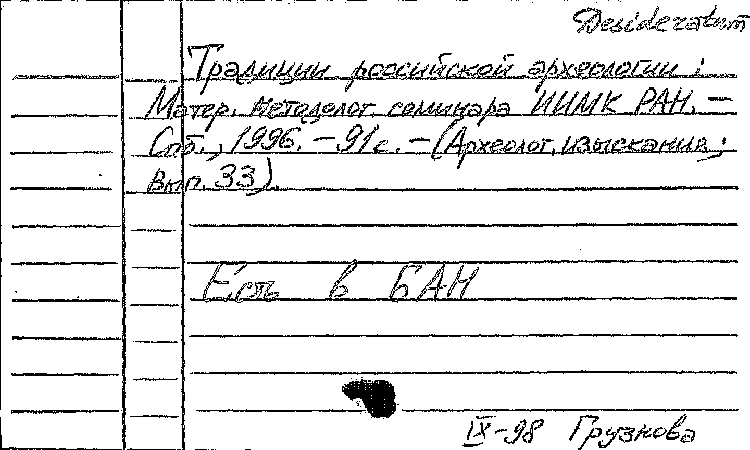 Desideratum
Традиции российской археологии:
Матер. методолог. семинара ИИМК РАН. –
Спб., 1996. – 91 с. – (Археолог. изыскания;
Вып. 33).
Есть в БАН
IX-98 Грузнова